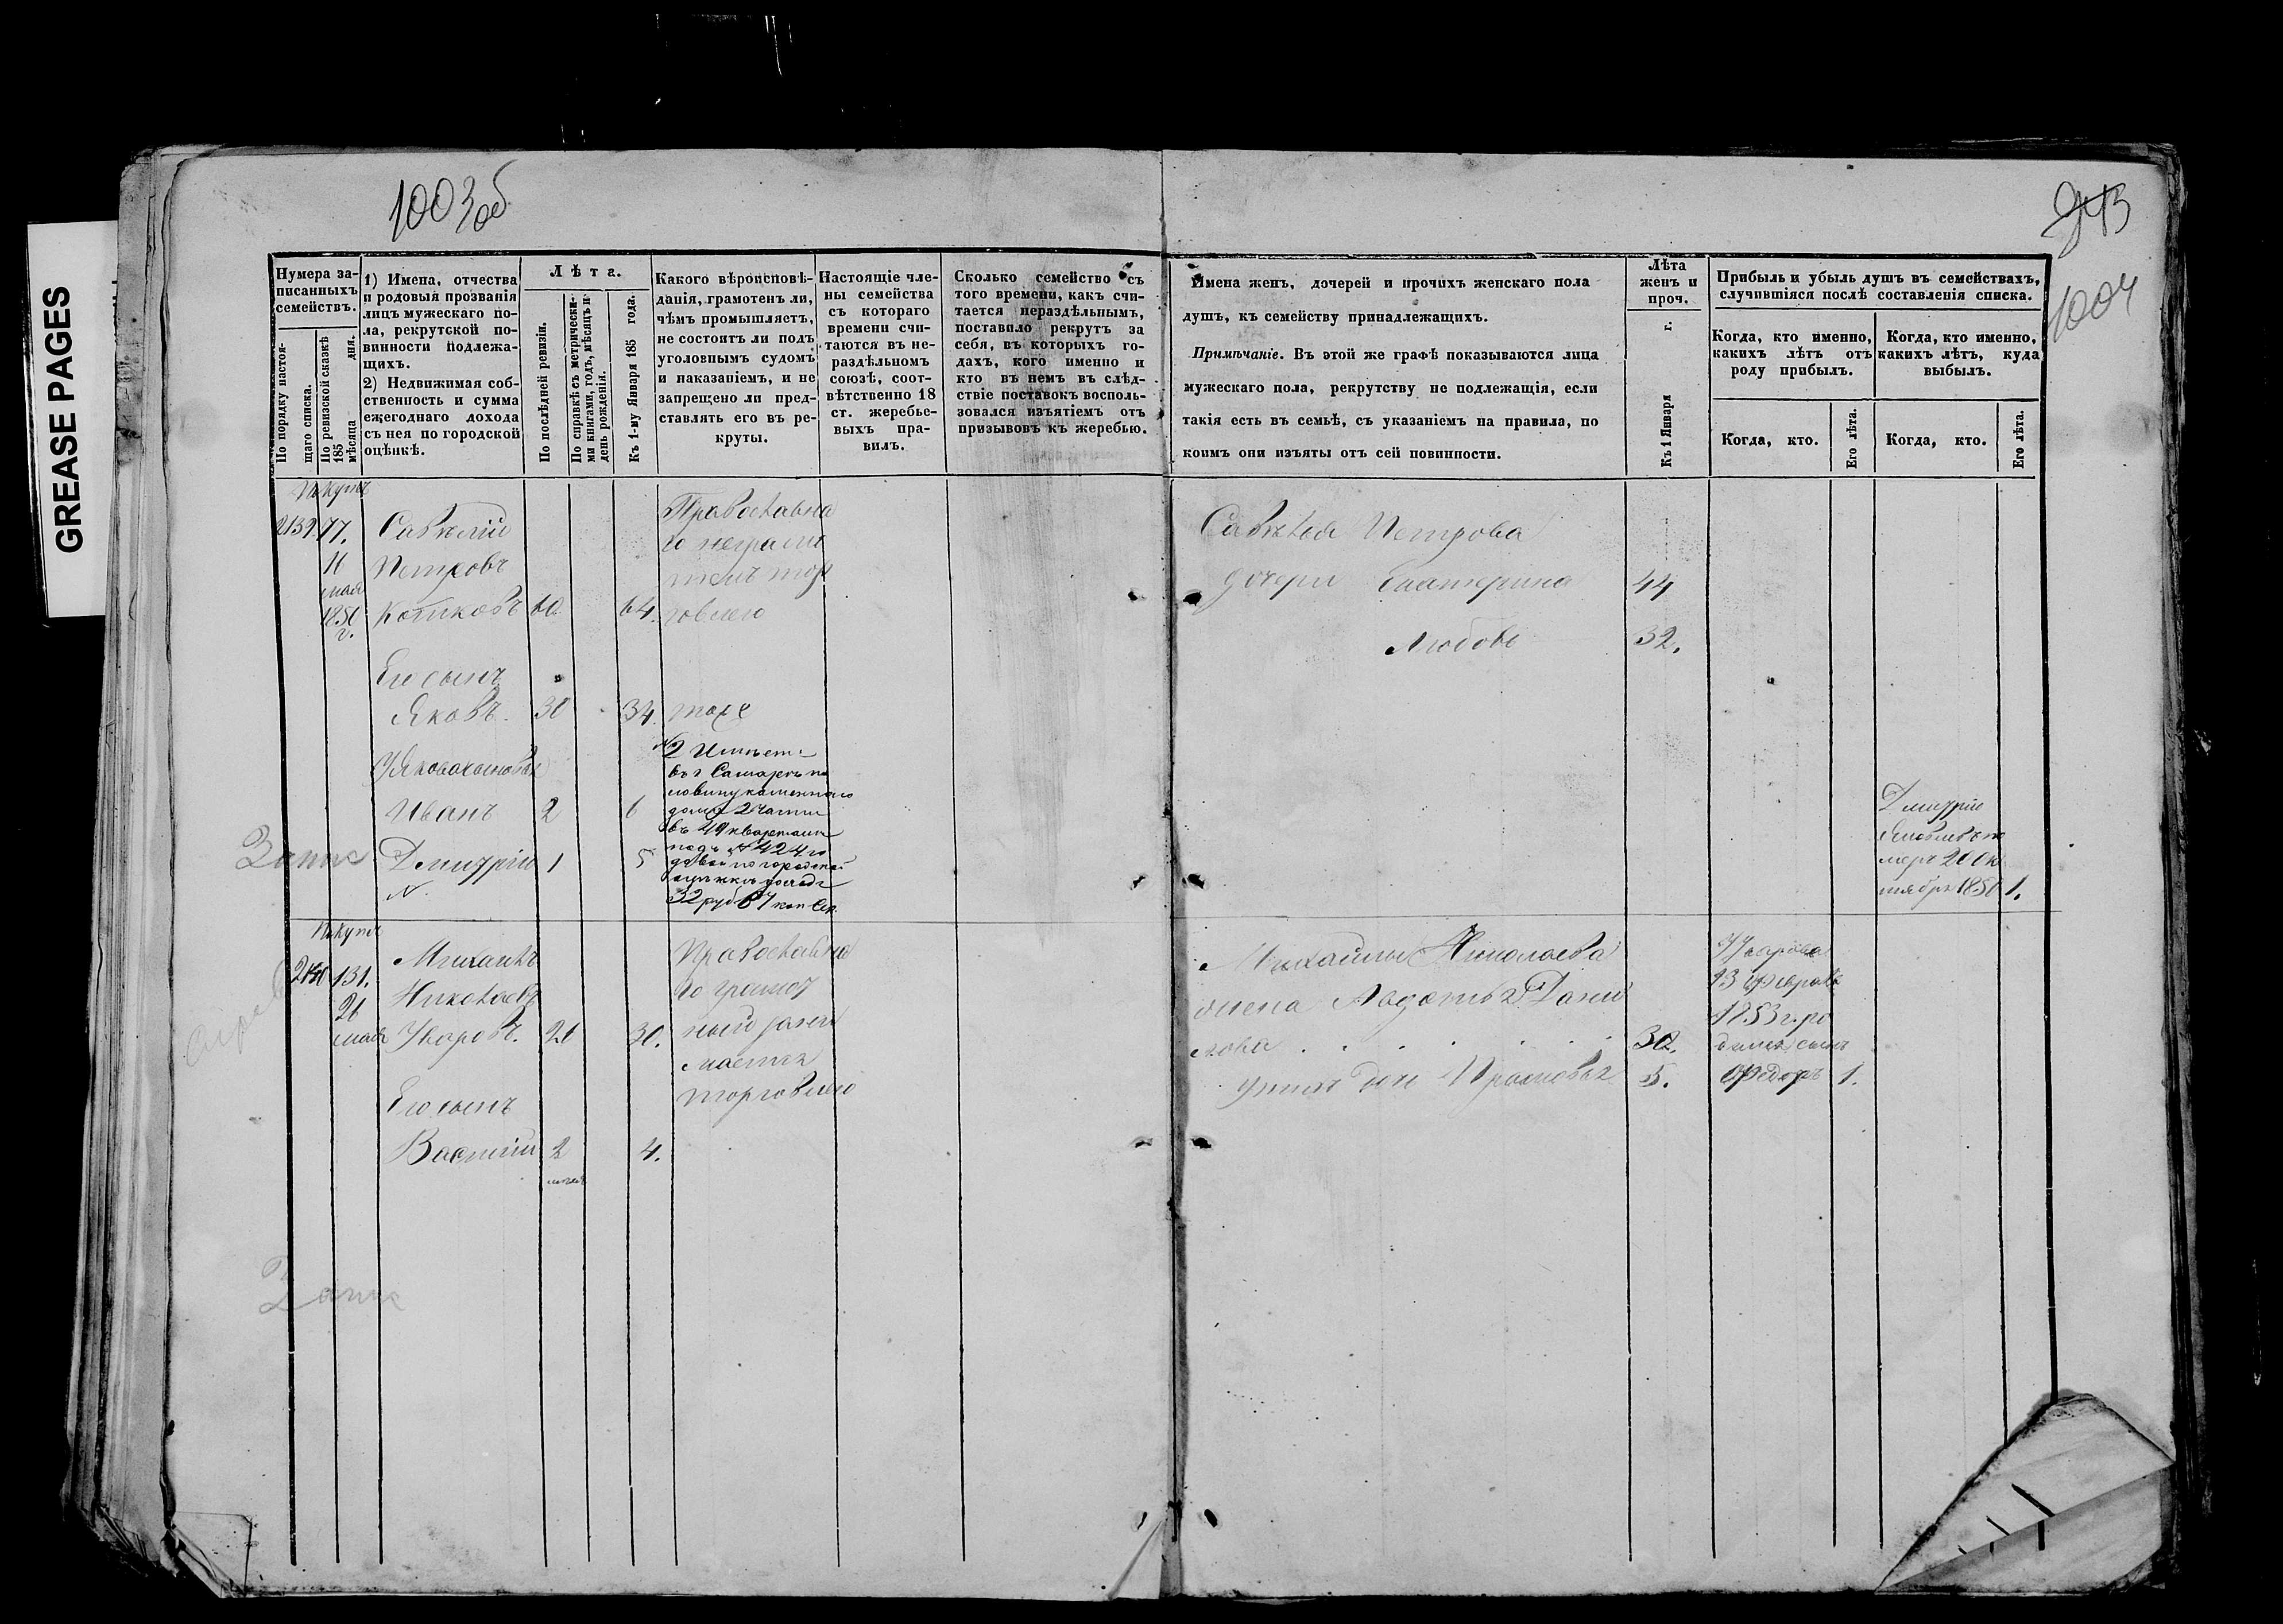 GREASE PAGES
1003об
1004
Нумера за-
писанныхъ
семействъ.
По порядку настоя-
щаго списка.
По ревизской сказкѣ
185
мѣсяца дня.
1) Имена, отчества
и родовыя прозванія
лицъ мужескаго по-
ла, рекрутской по-
винности подлежа-
щихъ.
2) Недвижимая соб-
ственность и сумма
ежегоднаго дохода
съ нея по городской
оцѣнкѣ.
Лѣта.
По послѣдней ревизіи.
По справкѣ съ метрически-
ми книгами, годъ, мѣсяцъ и
день рожденія.
Къ 1-му Января 185 года.
Какого вѣроисповѣ-
данія, грамотенъ ли,
чѣмъ промышляетъ,
не состоитъ ли подъ
уголовнымъ судомъ
и наказаніемъ, и не
запрещено ли пред-
ставлять его въ ре-
круты.
Настоящіе чле-
ны семейства
съ котораго
времени счи-
таются въ не-
раздѣльномъ
союзѣ, соот-
вѣтственно 18
ст. жеребье-
выхъ пра-
вилъ.
Сколько семейство съ
того времени, какъ счи-
тается нераздѣльнымъ,
поставило рекрутъ за
себя, въ которыхъ го-
дахъ, кого именно и
кто въ немъ въ слѣд-
ствіе поставокъ восполь-
зовался изъятіемъ отъ
призывовъ къ жеребью.
Имена женъ, дочерей и прочихъ женскаго пола
душъ, къ семейству принадлежащихъ.
Примѣчаніе. Въ этой же графѣ показываются лица
мужескаго пола, рекрутству не подлежащія, если
такія есть въ семьѣ, съ указаніемъ на правила, по
коимъ они изъяты отъ сей повинности.
Лѣта
женъ и
проч.
Къ 1 Января г.
Прибыль и убыль душъ въ семействахъ,
случившіяся послѣ составленія списка.
Когда, кто именно,
какихъ лѣтъ отъ
роду прибылъ.
Когда, кто именно,
какихъ лѣтъ, куда
выбылъ.
Когда, кто.
Его лѣта.
Когда, кто.
Его лѣта.
2139. 77. Савелій
мая Петровъ
1850 г.
60 64.
Православна
го неграмо
тенъ тор
говлею
Савелья Петрова
дочери Екатерина 44
Любовь 32.
Его сынъ
Яковъ. 30 34. тоже
Иванъ 2 6
Дмитрій 1 5
№ Имѣетъ
въ г Самарѣ по
ловину каменнаго
дома 2 части
въ 49 кварталѣ
подъ № 424 го
довой по городской
оцѣнкѣ доходъ
32 руб 67 коп Сер.
Дмитрій
Яковлевъ по
меръ 20 Ок
тября 1850 1.
131. Михаилъ
26 Николаевъ
мая Уваровъ. 26 30.
Православна
го грамот
ный
торговлею
Его сынъ
Василій 2 4.
Михайлы Николаева
жена Авдотья Дани
лова . . . . . . 30.
у нихъ дочь Прасковья 5.
У Уварова
13 Февраля
1853 г. ро
дился сынъ
Федоръ 1.